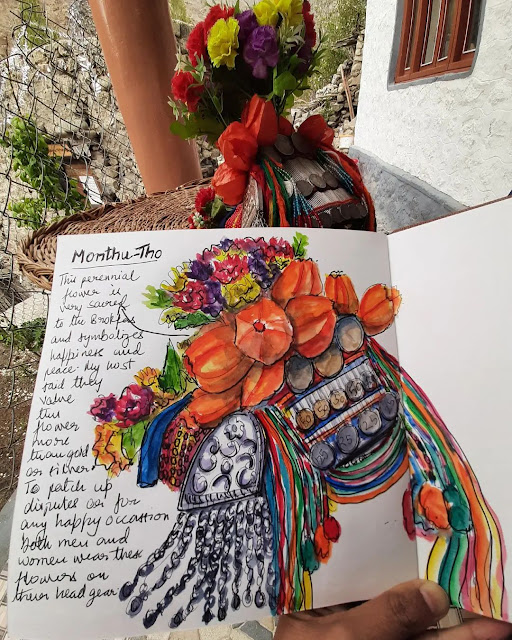 Monthu-Tho
This perennial
flower is
very sacred
to the Brokpas
and symbolizes
happiness and
peace. My host
said they
value
this
flower
more
than gold
or silver.
To patch up
disputes or for
any happy occassion
both men and
women wear these
flowers on
their head gear